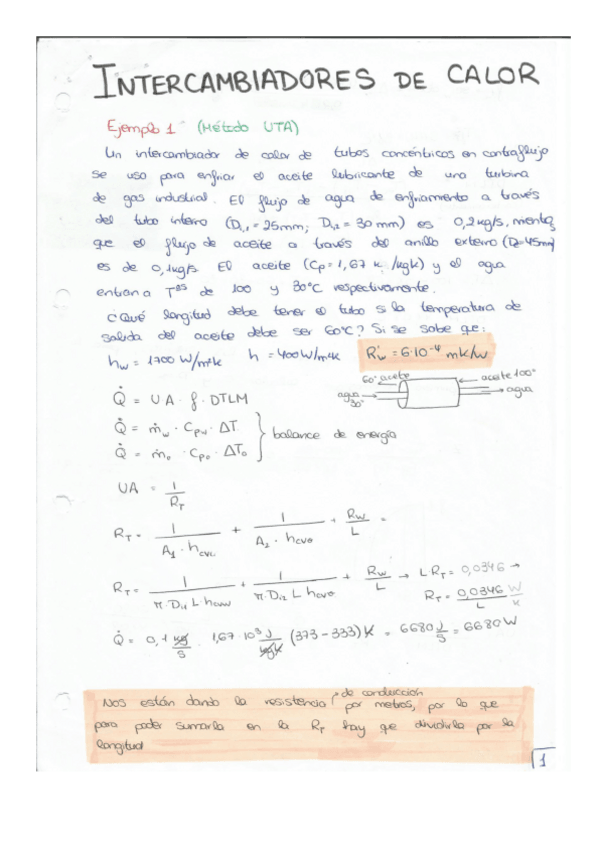 INTERCAMBIADORES DE CALOR
Ejemplo 1 (Método UTA)
Un intercambiador de calor de tubos concéntricos en contraflujo
se usa para enfriar el aceite lubricante de una turbina
de gas industrial. El flujo de agua de enfriamento a través
del tubo interno (Di,1 = 25mm; Di,2 = 30mm) es 0,2kg/s, mientras
que el flujo de aceite a través del anillo externo (D=45mm)
es de 0,1kg/s. El aceite (Cp = 1,67 k /kgk) y el agua
entran a Tªs de 100 y 30°C respectivamente.
¿Qué longitud debe tener el tubo si la temperatura de
salida del aceite debe ser 60°C? Si se sabe que:
hw = 1700 W/m²k h = 400 W/m²k R'w = 6·10⁻⁴ mk/w
60° aceite aceite 100°
agua 30° agua
Q̇ = UA · f · DTLM
Q̇ = ṁw · Cpw · ΔT
Q̇ = ṁo · Cpo · ΔTo } balance de energía
UA = 1/RT
RT = 1/(A1 · hcvw) + 1/(A2 · hcvo) + Rw/L =
RT = 1/(π·Di1 L·hcvw) + 1/(π·Di2 L hcvo) + Rw/L → L·RT = 0,0346 →
RT = 0,0346/L W/K
Q̇ = 0,1 kg/s · 1,67·10³ J/kgk (373-333)K = 6680 J/s = 6680W
Nos están dando la resistencia de conducción por metros, por lo que
para poder sumarla en la RT hay que dividirla por la
longitud
1